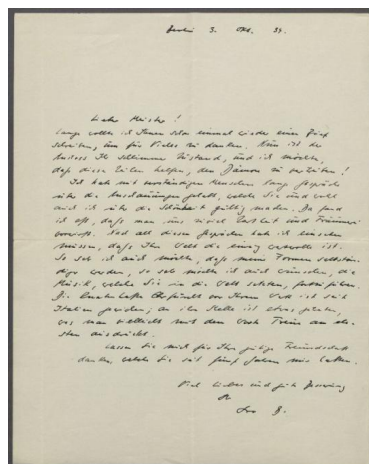 Berlin 3. Okt. 34.
Lieber Meister!
Lange wollte ich Ihnen schon einmal wieder einen Brief
schreiben, um für Vieles zu danken. Nun ist der
Anlass Ihr schlimmer Zustand, und ich möchte,
dass diese Zeilen helfen, den Dämon zu vertreiben!
Ich hab mit verständigen Menschen lange Gespräche
über die Anschauungen gehabt, welche Sie und wohl
auch ich über die Schönheit gültig machen. Da fand
ich oft, dass man uns zuviel und
vorwirft. Und all diesen Gesprächen hab ich
müssen, dass Ihre Welt die einzig wertvolle ist.
So sehr ich auch möchte, dass meine Formen selbstän-
diger werden, so sehr möchte ich auch wünschen, die
Musik, welche Sie in die Welt setzten, fortzuführen.
Die Ehrfurcht vor Ihrem Werk ist seit
Italien gewichen; an ihre Stelle ist etwas getreten,
was man vielleicht mit dem Wort Treue am
sten ausdrückt.
Lassen Sie mich für Ihre gütige Freundschaft
danken, welche Sie seit fünf Jahren mir
Viel Liebes und gute